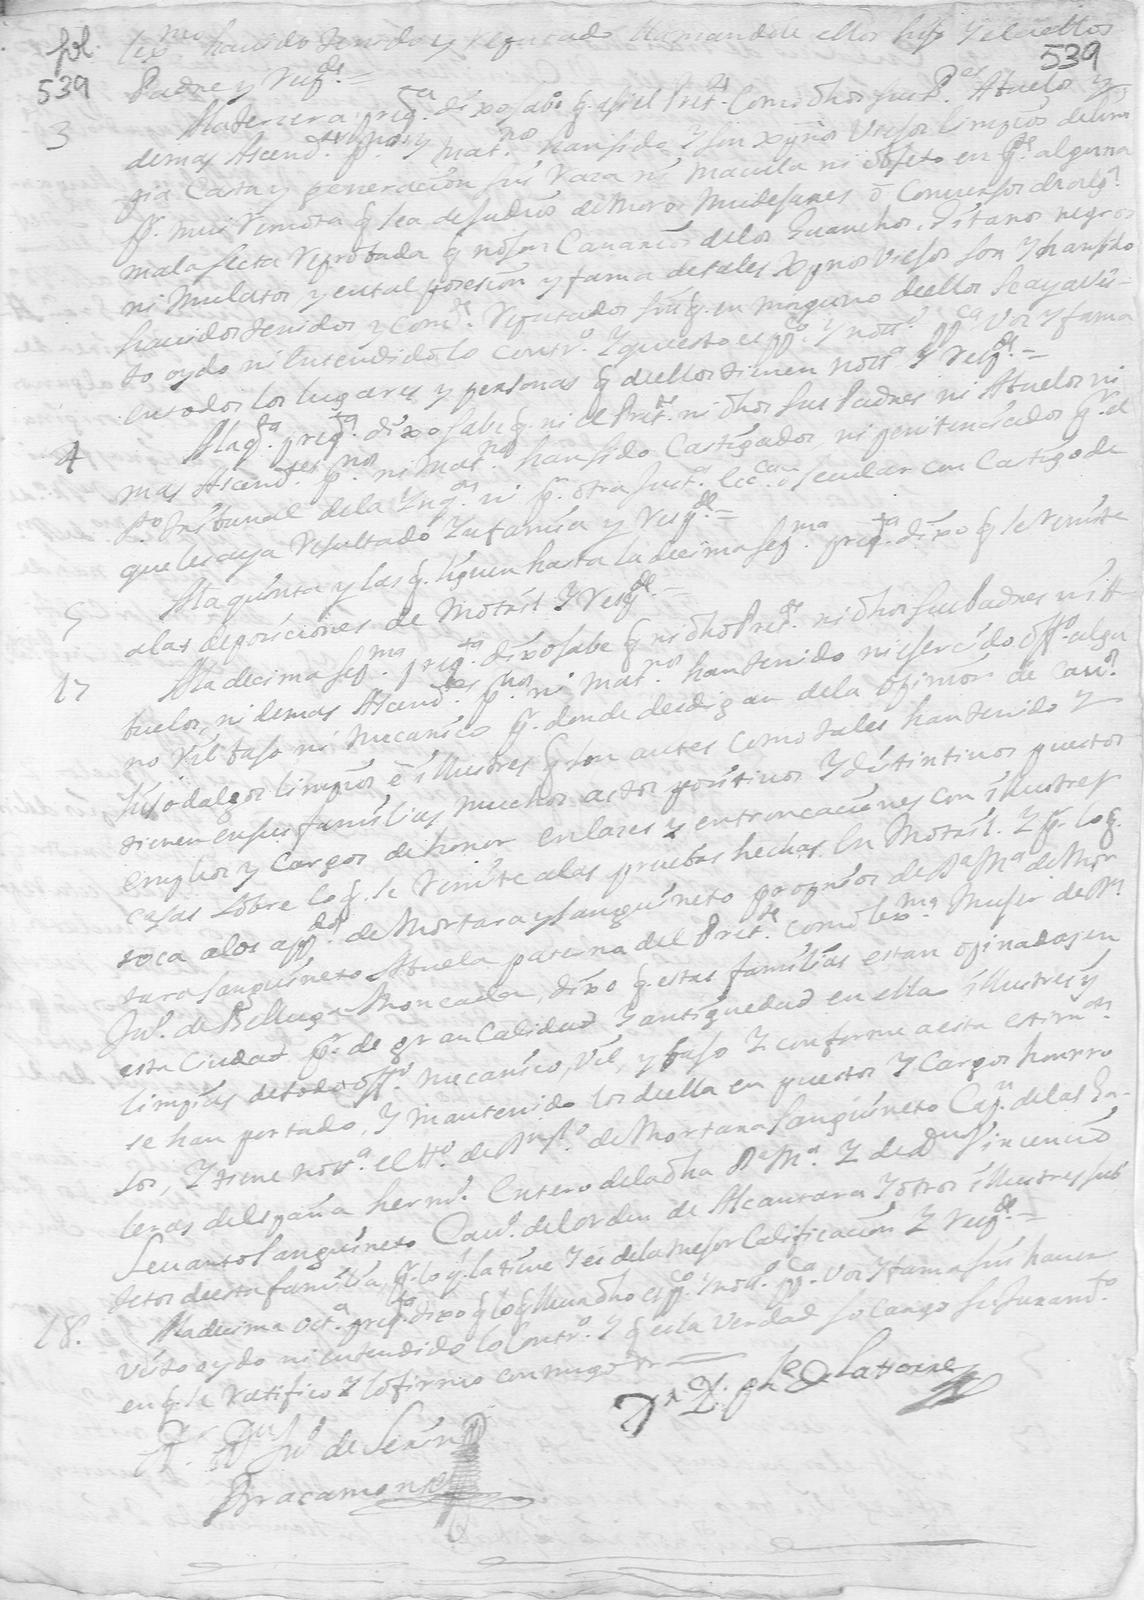 fol. 539
539
lexmo havido tenido y reputado llamandole ellos hijo y el a ellos
Padre y respde =
3 A la tercera pregta dixo sabe q. asi el Prete. como dhos sus Ps. Abuelos y
demas Ascendtes pnos y matnos han sido y son xpnos viejos limpios de lim
pia Casta y generacion sin raza ni macula ni objeto en pte alguna
pr. mui remota q sea de Judios de Moros Mudejares o Conversos de otra
mala secta reprobada q no son Canarios de los Guanchos, Gitanos negros
ni Mulatos y en tal posesion y fama de tales Xpnos viejos son y han sido
havidos tenidos y comte. reputados sin q. en ninguno de ellos se aya vis-
to oydo ni entendido lo contro. Y que esto es ppco y notto. ppca voz y fama
en todos los lugares y personas q de ellos tienen notta y respde =
4 A la qta pregta dixo sabe q. ni el Prete. ni dhos sus Padres ni Abuelos ni
mas Ascendtes pnos ni matnos han sido Castigados ni penitenciados pr. el
Sto Tribunal de la Inqon ni pr. otra Justa. Ecca. o secular con Castigo de
que les aya resultado Infamia y respde =
5 A la quinta y las q. siguen hasta la decima sepma pregta dixo q se remite
a las deposiciones de Motril y respde =
17 A la decima sepma pregta dixo sabe q ni dho Prete. ni dhos sus Padres ni A-
buelos, ni demas Ascendtes pnos ni matnos han tenido ni exercido offo algu
no vil bajo ni mecanico pr. donde desdigan de la opinion de Cavos
hijosdalgos limpios e illustres q son antes como tales han tenido y
tienen en sus familias muchos actos positivos y distintivos puestos
empleos y Cargos de honor enlazes y entroncaciones con illustres
casas sobre lo q. se remite a las pruebas hechas en Motril. Y pr. lo q.
toca a los appdos de Mortara y Sanguineto propios de Da Ma de Mor
tara Sanguineto Abuela paterna del Prete. como lexma Mujer de Dn
Jno. de Belluga Moncada, dixo q estas familias estan opinadas en
esta Ciudad pr. de gran Calidad y antiguedad en ella illustres y
limpias de todo offo mecanico, vil, y bajo y conforme a esta estimon
se han portado, y mantenido los de ella en puestos y Cargos honro
sos, y tiene notta el tto de de Mortara Sanguineto Capn. de las Ga-
leras de España hermo. entero de la dha Da Ma. y de Dn Vicencio
Sanguineto Cavo. del orden de Alcantara y otros illustres sub
jetos de esta familia pr. lo q. la tiene y es de la mejor Calificacion y respde =
18. A la decima octa. pregta dixo q lo q lleva dho es ppco y notto. ppca voz y fama sin haver
visto oydo ni entendido lo contro. Y q es la verdad so cargo de su Juramto
en q. se ratifico y lo firmo con migo
Dn Jno de
Bracamonte
Latorre